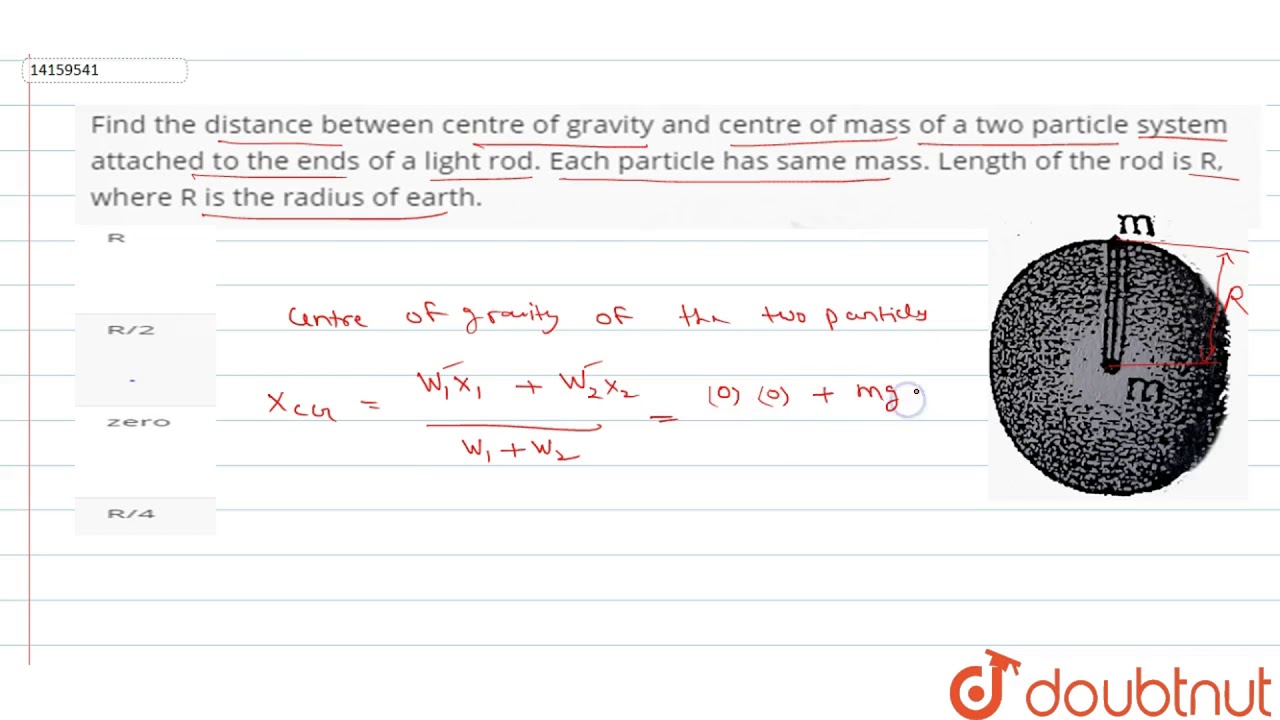 14159541
Find the distance between centre of gravity and centre of mass of a two particle system
attached to the ends of a light rod. Each particle has same mass. Length of the rod is R,
where R is the radius of earth.
R
R/2
zero
R/4
centre of gravity of the two particles
X_CG = (W₁X₁ + W₂X₂) / (W₁ + W₂) = (0) (0) + mg
m
R
m
doubtnut